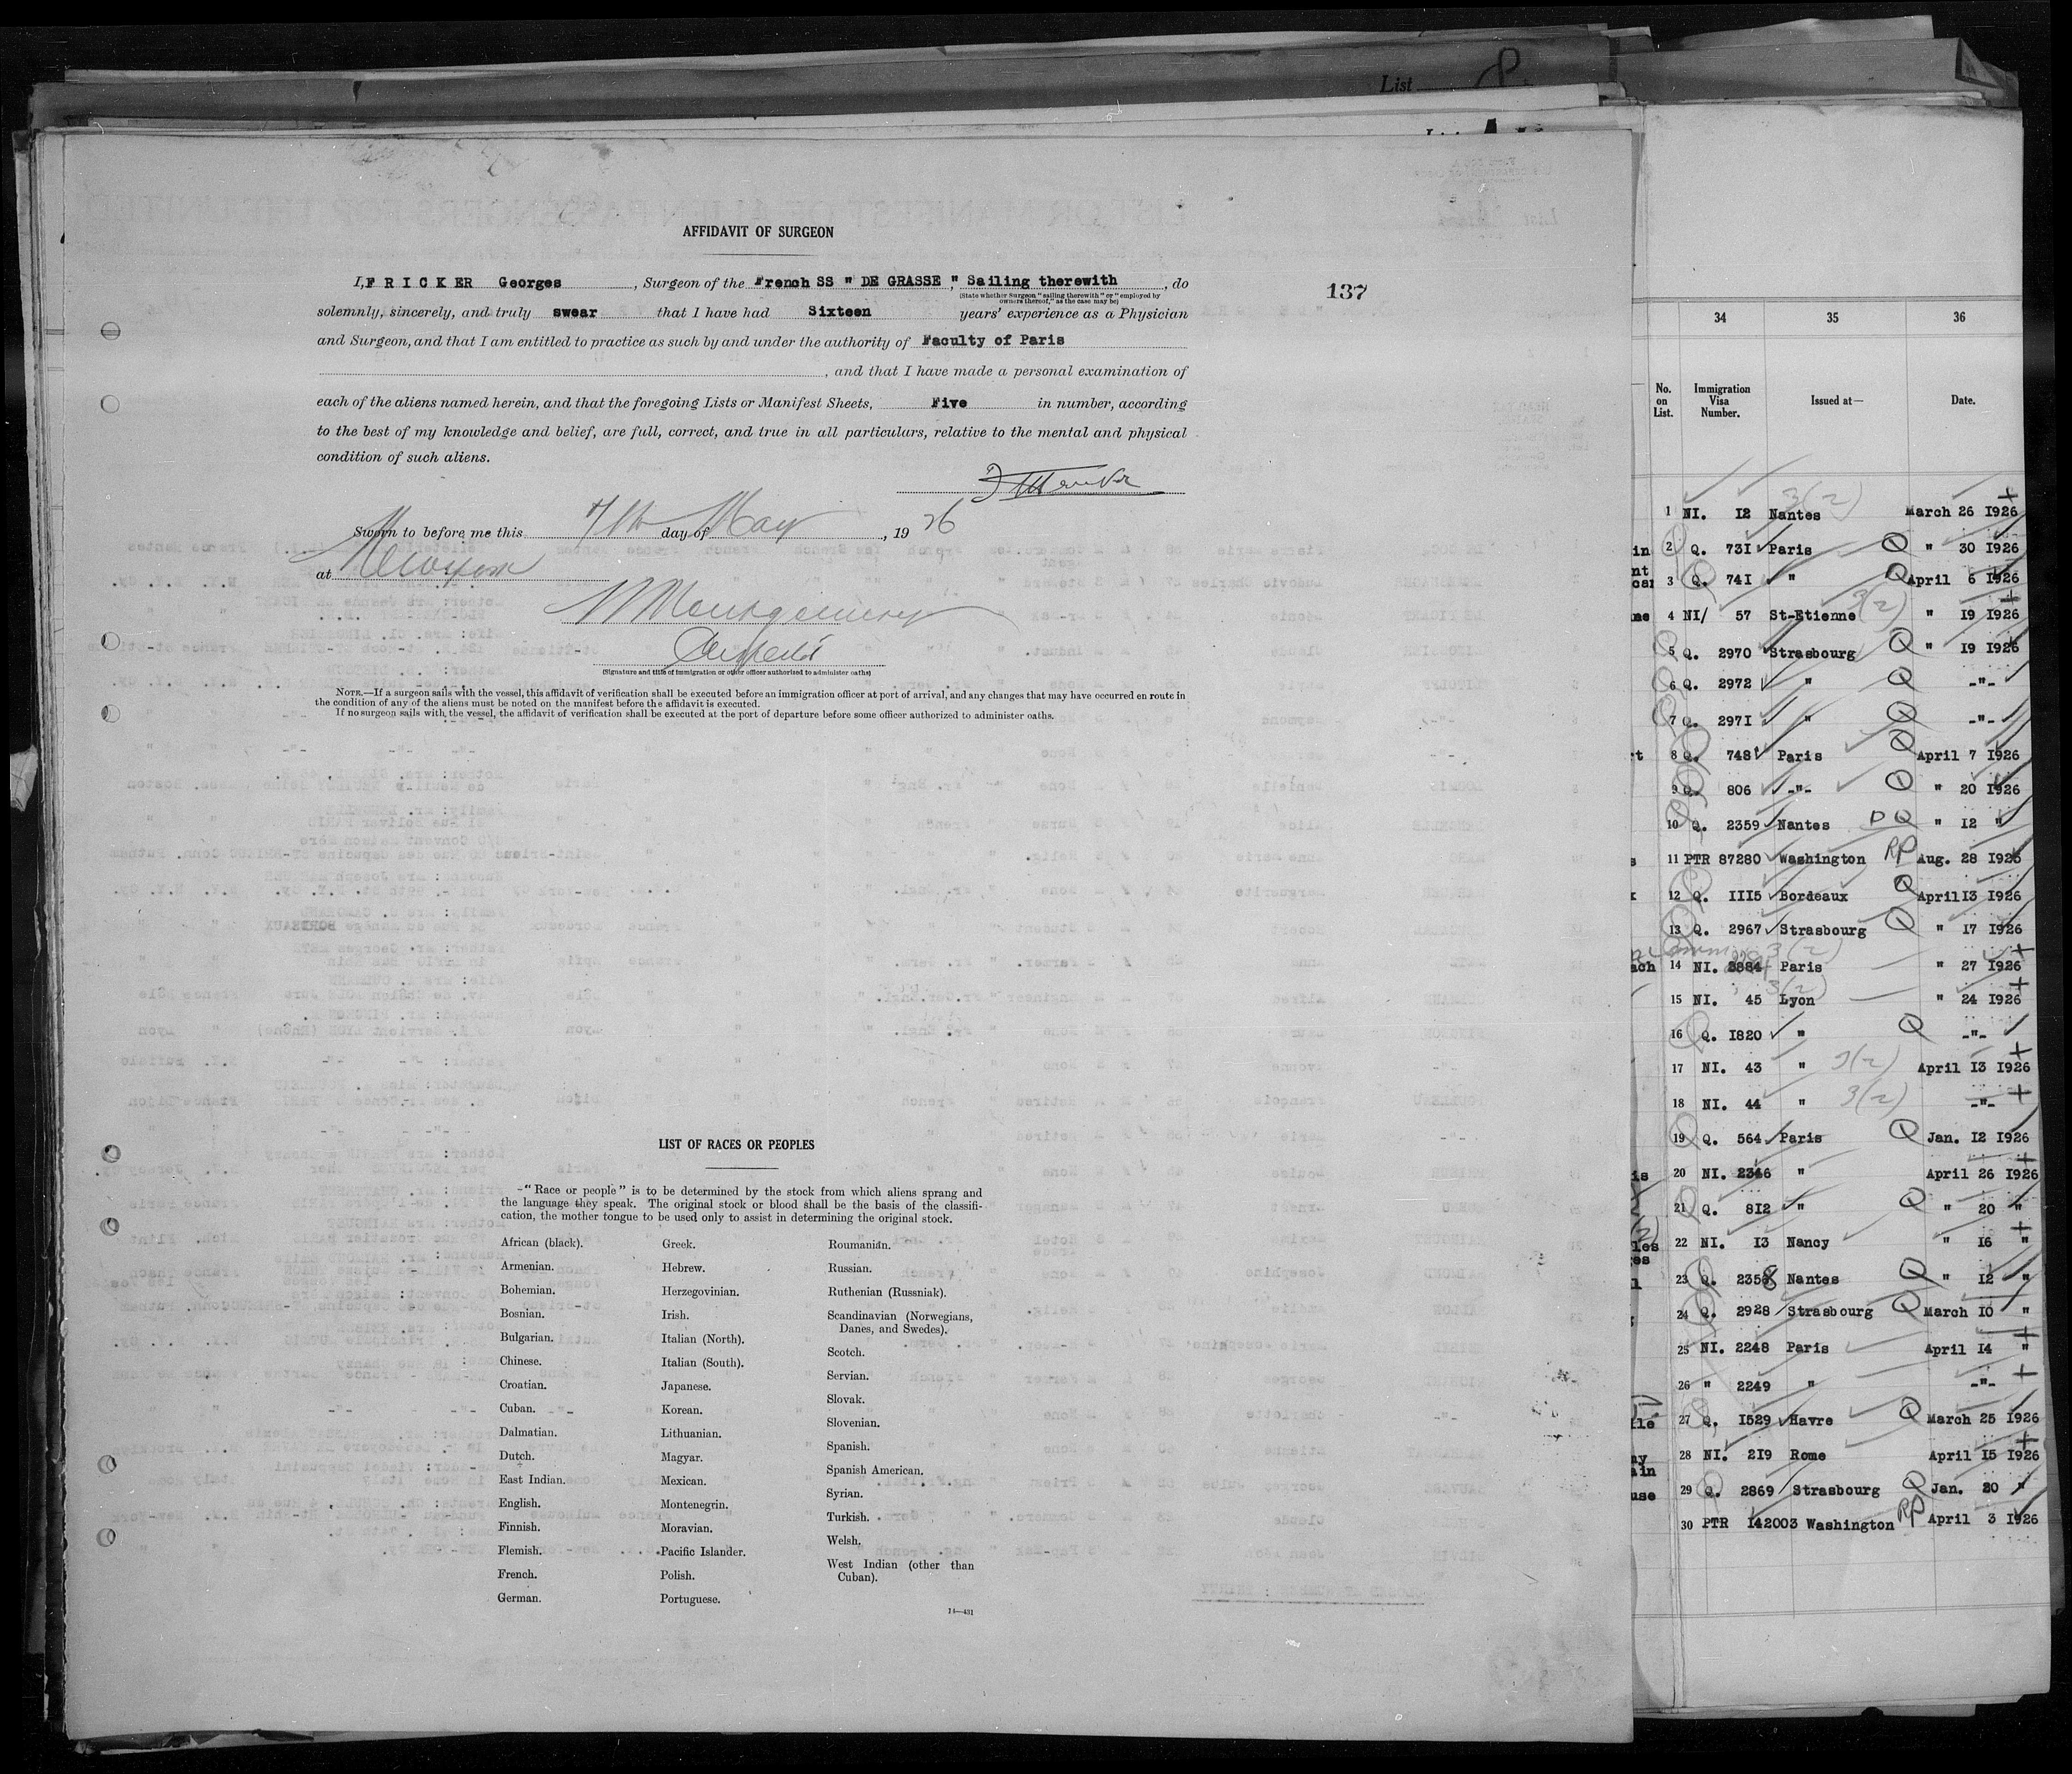 List
AFFIDAVIT OF SURGEON
I, FRICKER Georges, Surgeon of the French SS " DE GRASSE ", Sailing therewith, do
(State whether Surgeon "sailing therewith" or "employed by
owners thereof," as the case may be)
137
solemnly, sincerely, and truly swear that I have had Sixteen years' experience as a Physician
and Surgeon, and that I am entitled to practice as such by and under the authority of Faculty of Paris
, and that I have made a personal examination of
each of the aliens named herein, and that the foregoing Lists or Manifest Sheets, Five in number, according
to the best of my knowledge and belief, are full, correct, and true in all particulars, relative to the mental and physical
condition of such aliens.
Sworn to before me this 7th day of May, 1926
at
Montgomery
(Signature and title of immigration or other officer authorized to administer oaths)
NOTE.—If a surgeon sails with the vessel, this affidavit of verification shall be executed before an immigration officer at port of arrival, and any changes that may have occurred en route in
the condition of any of the aliens must be noted on the manifest before the affidavit is executed.
If no surgeon sails with the vessel, the affidavit of verification shall be executed at the port of departure before some officer authorized to administer oaths.
LIST OF RACES OR PEOPLES
"Race or people" is to be determined by the stock from which aliens sprang and
the language they speak. The original stock or blood shall be the basis of the classifi-
cation, the mother tongue to be used only to assist in determining the original stock.
African (black).
Armenian.
Bohemian.
Bosnian.
Bulgarian.
Chinese.
Croatian.
Cuban.
Dalmatian.
Dutch.
East Indian.
English.
Finnish.
Flemish.
French.
German.
Greek.
Hebrew.
Herzegovinian.
Irish.
Italian (North).
Italian (South).
Japanese.
Korean.
Lithuanian.
Magyar.
Mexican.
Montenegrin.
Moravian.
Pacific Islander.
Polish.
Portuguese.
Roumanian.
Russian.
Ruthenian (Russniak).
Scandinavian (Norwegians,
Danes, and Swedes).
Scotch.
Servian.
Slovak.
Slovenian.
Spanish.
Spanish American.
Syrian.
Turkish.
Welsh.
West Indian (other than
Cuban).
14—431
34 35 36
No. on List. Immigration Visa Number. Issued at— Date.
1 NI. 12 Nantes 3(2) March 26 1926
2 Q. 731 Paris Q " 30 1926
3 Q. 741 " Q April 6 1926
4 NI/ 57 St-Etienne 3(2) " 19 1926
5 Q. 2970 Strasbourg Q " 19 1926
6 Q. 2972 " Q -"-
7 Q. 2971 " Q -"-
8 Q. 748 Paris Q April 7 1926
9 Q. 806 -"- Q " 20 1926
10 Q. 2359 Nantes D Q " 12 "
11 PTR 87280 Washington RP Aug. 28 1925
12 Q. 1115 Bordeaux Q April 13 1926
13 Q. 2967 Strasbourg Q " 17 1926
14 NI. Paris 3(2) " 27 1926
15 NI. 45 Lyon 3(2) " 24 1926
16 Q. 1820 " Q -"-
17 NI. 43 " 3(2) April 13 1926
18 NI. 44 " 3(2) -"-
19 Q. 564 Paris Q Jan. 12 1926
20 NI. 2346 " April 26 1926
21 Q. 812 " Q " 20 "
22 NI. 13 Nancy " 16 "
23 Q. 2358 Nantes Q " 12 "
24 Q. 2928 Strasbourg Q March 10 "
25 NI. 2248 Paris April 14 "
26 " 2249 " -"-
27 Q. 1529 Havre Q March 25 1926
28 NI. 219 Rome April 15 1926
29 Q. 2869 Strasbourg Q Jan. 20 "
30 PTR 142003 Washington RP April 3 1926